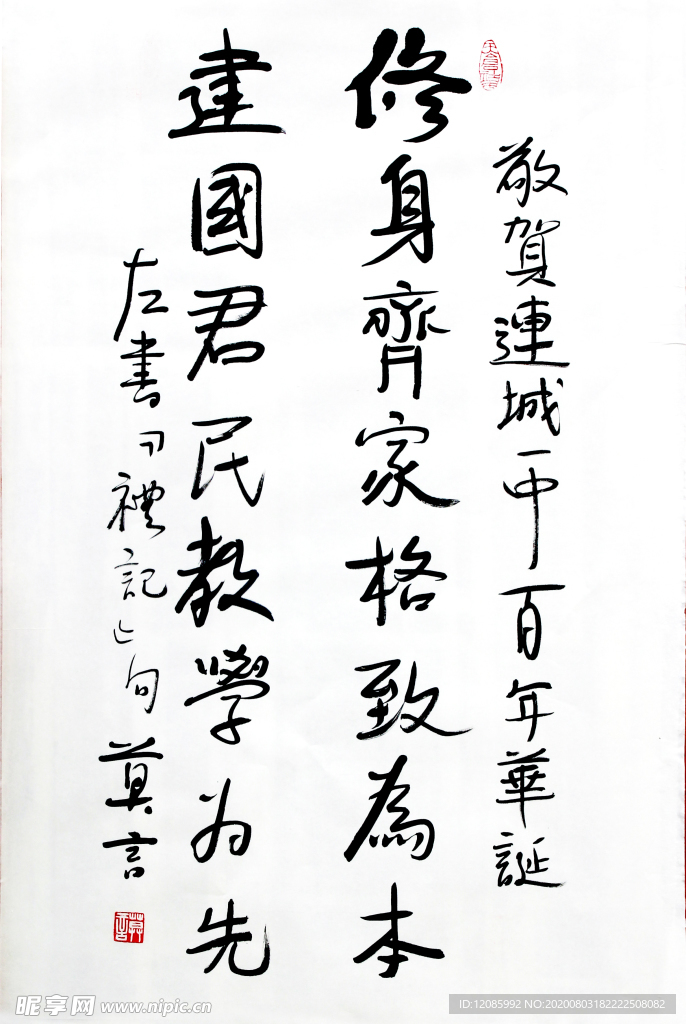 敬賀連城一中百年華誕
修身齊家格致為本
建國君民教學为先
左書
禮記
句
莫言
莫言
昵享网 www.nipic.cn
ID:12085992 NO:20200803182222508082